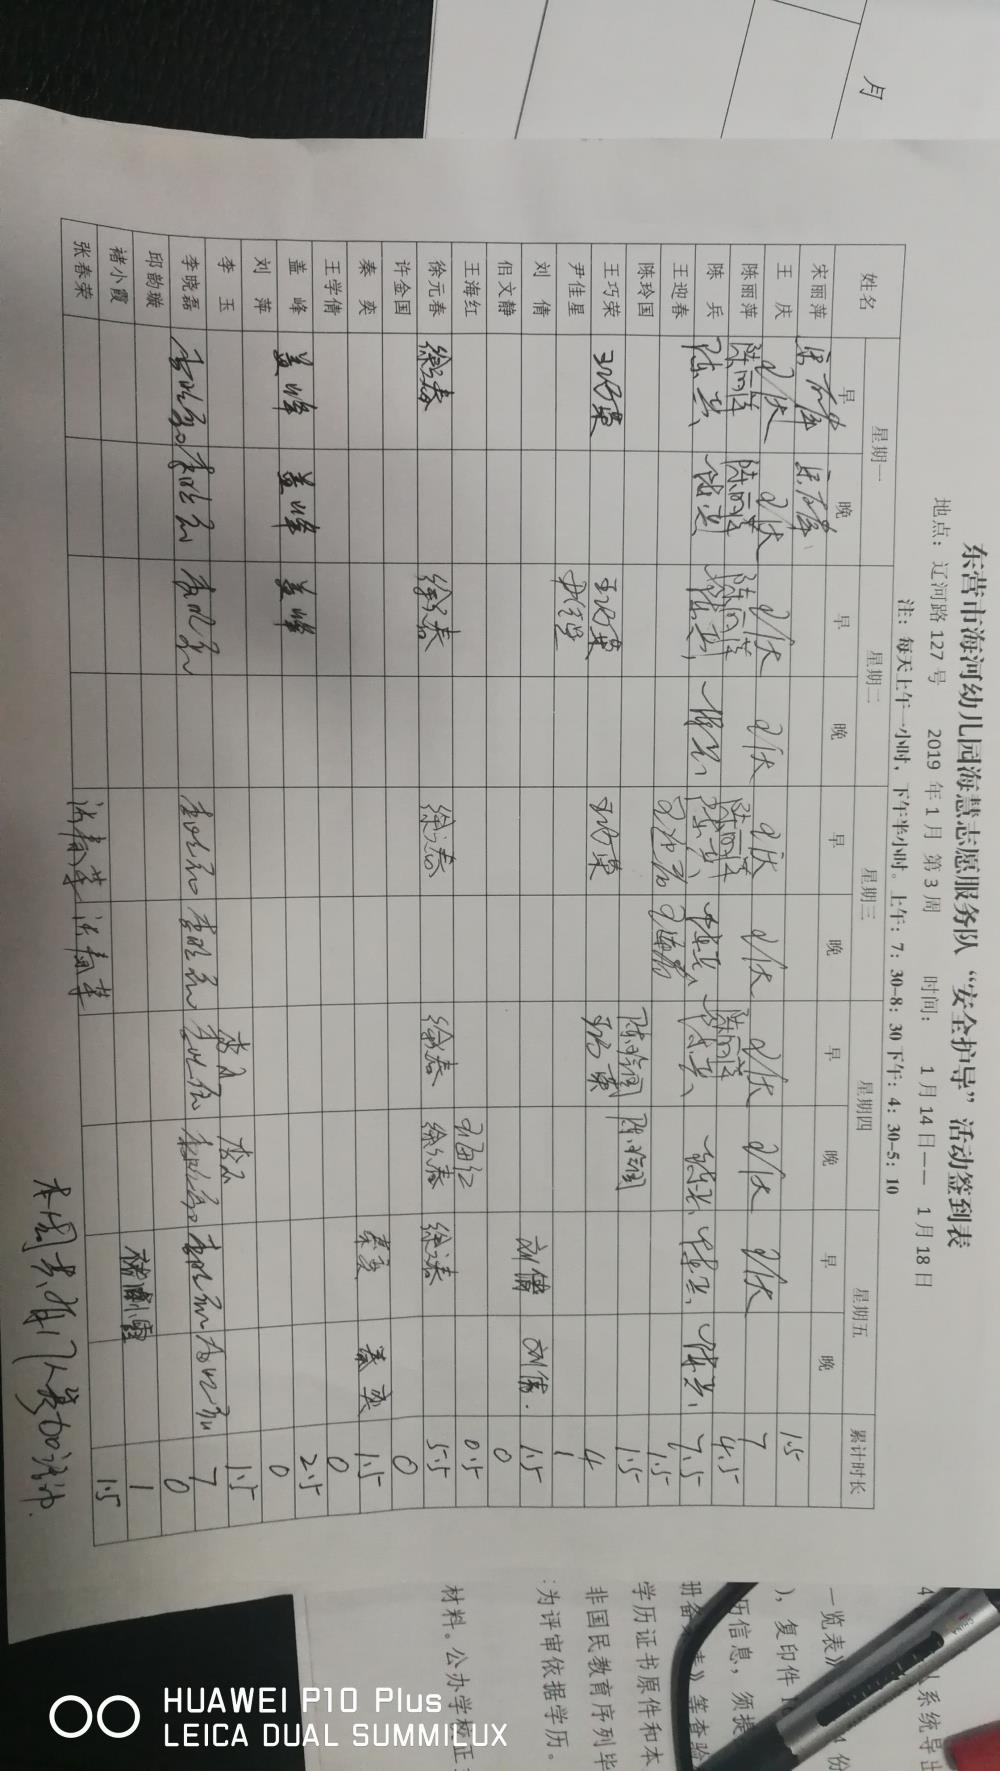 东营市海河幼儿园海慧志愿服务队“安全护导”活动签到表
地点：辽河路127号 2019年1月 第3周 时间： 1月14日—— 1月18日
注：每天上午一小时，下午半小时。上午：7：30-8：30 下午：4：30-5：10
姓名 星期一 星期二 星期三 星期四 星期五 累计时长
早 晚 早 晚 早 晚 早 晚 早 晚
宋丽萍 1.5
王 庆 7
陈丽萍 陈丽萍 陈丽萍 陈丽萍 陈丽萍 陈丽萍 4.5
陈 兵 陈兵 陈兵 陈兵 陈兵 陈兵 陈兵 陈兵 陈兵 陈兵 陈兵 7.5
王迎春 1.5
陈玲国 陈玲国 陈玲国 1.5
王巧荣 王巧荣 王巧荣 王巧荣 王巧荣 4
尹佳星 尹佳星 1
刘 倩 刘倩 刘倩 1.5
但文静 0
王海红 王海红 0.5
徐元春 徐元春 徐元春 徐元春 徐元春 徐元春 徐元春 5.5
许金国 0
秦 奕 秦奕 秦奕 1.5
王学倩 0
盖 峰 盖峰 盖峰 盖峰 2.5
刘 萍 0
李 玉 李玉 李玉 1.5
李晓磊 李晓磊 李晓磊 李晓磊 李晓磊 李晓磊 李晓磊 李晓磊 李晓磊 李晓磊 7
邱韵璇 0
褚小霞 褚小霞 1
张春荣 张春荣 张春荣 1.5
本周共有17人参加活动.
月
一览表》
），复印件
历信息，须提
册备
》等查验
学历证书原件和本
非国民教育序列毕
：为评审依据学历。
材料。公办学校正
系统导出
HUAWEI P10 Plus
LEICA DUAL SUMMILUX